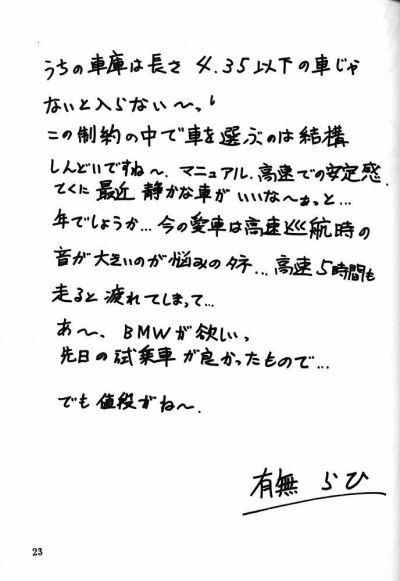 うちの車庫は長さ 4.35以下の車じゃ
ないと入らない〜。
この制約の中で車を選ぶのは結構
しんどいですね〜。マニュアル、高速での安定感、
てくに 最近 静かな車が いいな〜ぁっと…
年でしょうか… 今の愛車は高速巡航時の
音が大きいのが悩みのタネ… 高速5時間も
走ると疲れてしまって…
あ〜、BMWが欲しいっ
先日の試乗車が良かったもので…
でも値段がね〜.
有無 らひ
23